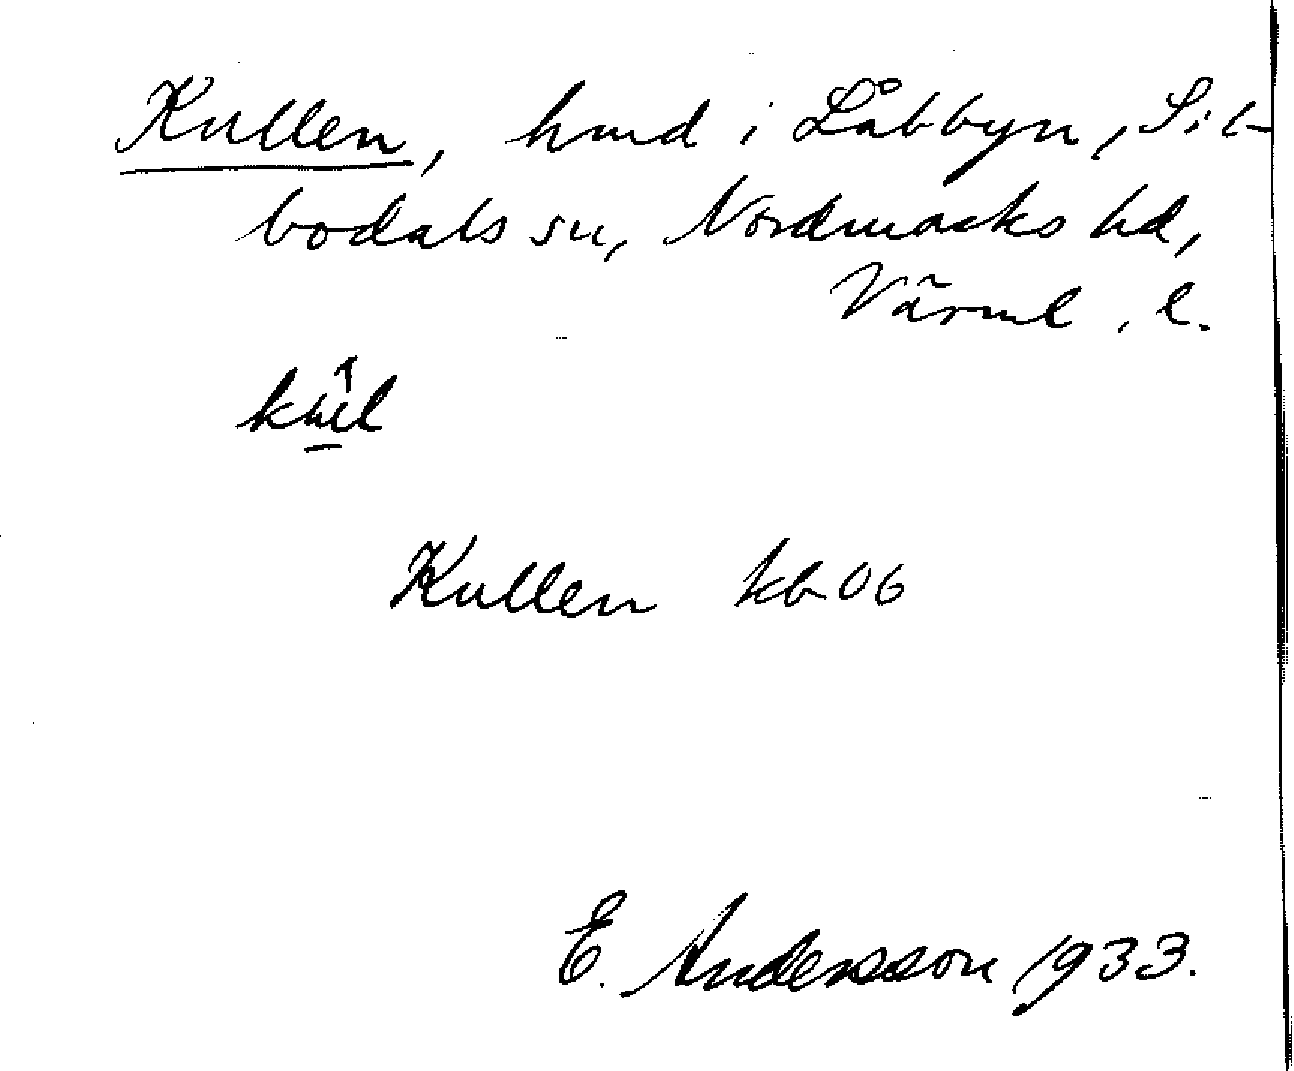 Kullen, hmd i Låbbyn, Sil-
bodals sn, Nordmarks hd,
Värml. l.
Kullen kb 06
E. Andersson 1933.